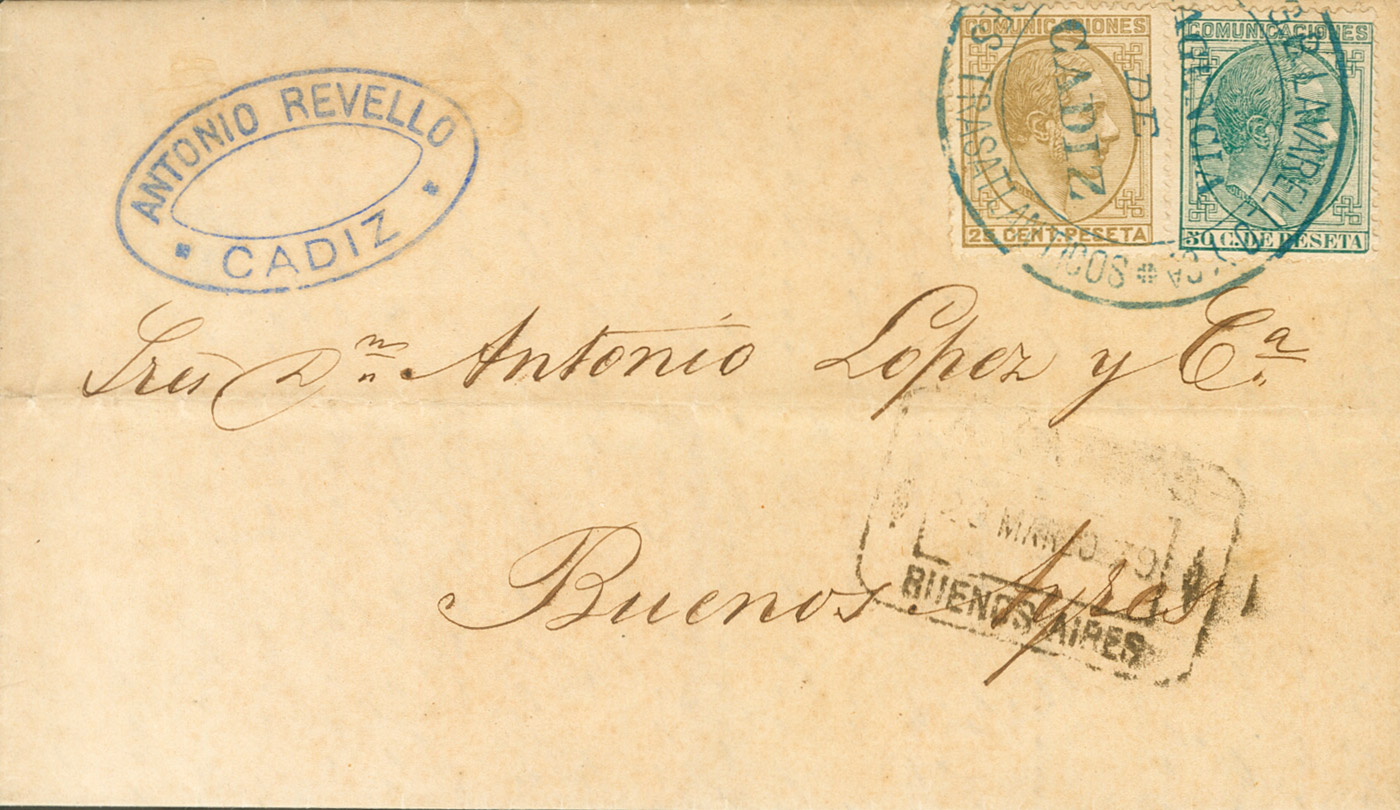 ANTONIO REVELLO
CADIZ
COMUNICACIONES
25 CENT. PESETA
COMUNICACIONES
50 C. DE PESETA
DE
CADIZ
TRASATLANTICOS
Sres Dn Antonio Lopez y Ca
Buenos Ayres
MARZO 79
BUENOS AIRES